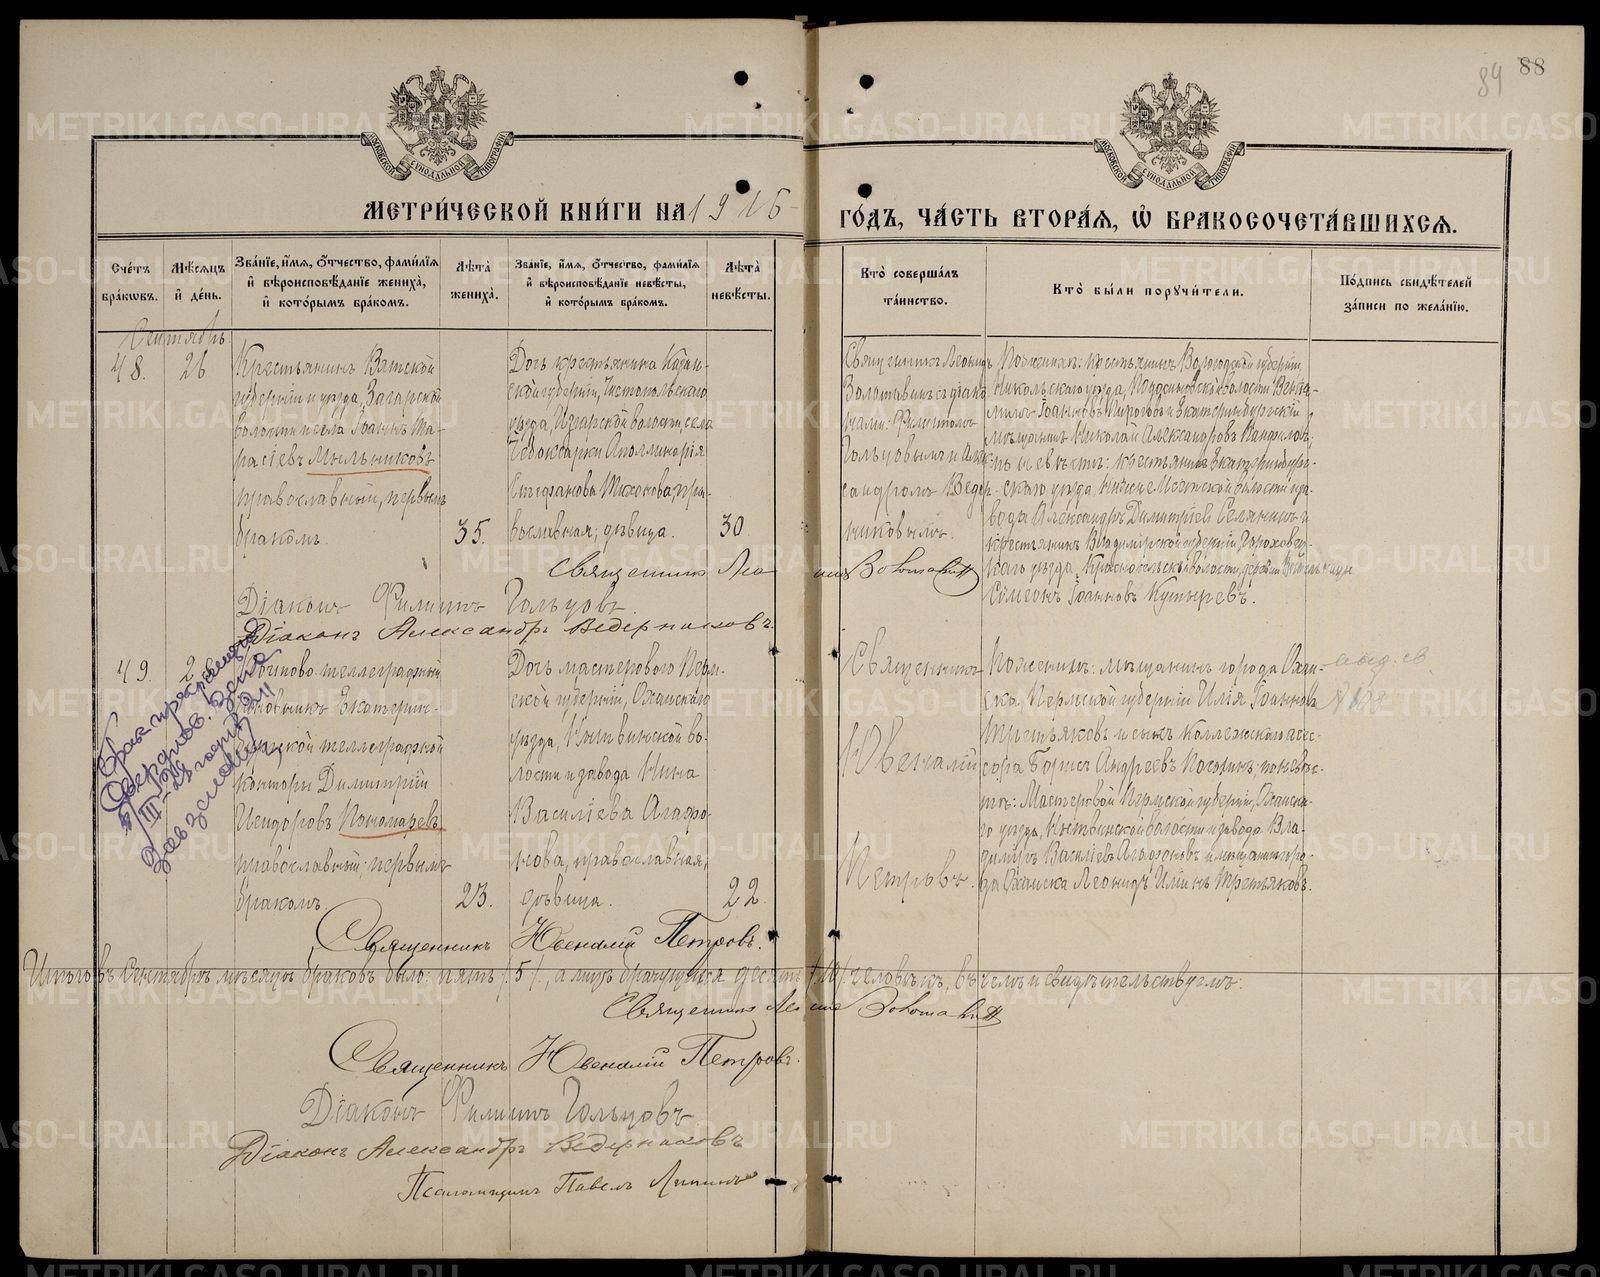 88
84
МОСКОВСКОЙ СѴНОДАЛЬНОЙ ТИПОГРАФІИ
МОСКОВСКОЙ СѴНОДАЛЬНОЙ ТИПОГРАФІИ
МЕТРИ́ЧЕСКОЙ КНИ́ГИ НА 1915
ГО́ДЪ, ЧА́СТЬ ВТОРА́Я, Ѽ БРАКОСОЧЕТА́ВШИХСЯ.
Счетъ браковъ.
Мѣсяцъ й день.
Званіе, имя, отчество, фамилія й вѣроисповѣданіе жениха, й которымъ бракомъ.
Лѣта жениха.
Званіе, имя, отчество, фамилія й вѣроисповѣданіе невѣсты, й которымъ бракомъ.
Лѣта невѣсты.
Кто совершалъ таинство.
Кто были поручители.
Подпись свидѣтелей записи по желанію.
Сентябрь
48.
Крестьянинъ Вятской
губерніи и уѣзда, Загарской
волости и села Іоаннъ Та-
расіевъ Мыльниковъ
православный, первымъ
бракомъ.
35.
Дочь крестьянина Казан-
ской губерніи, Чистопольскаго
уѣзда, Изгарской волости, села
Чебоксарки Аполлинарія
Стефанова Тихонова, пра-
вославная, дѣвица.
30
Священникъ Леонидъ
Золотавинъ съ діако-
нами: Филиппомъ
Гольцовымъ и Алек-
сандромъ Ведер-
никовымъ.
По женихѣ: крестьянинъ Вологодской губерніи,
Никольскаго уѣзда, Подосиновской волости Веніа-
минъ Іоанновъ Пироговъ и Екатеринбургскій
мѣщанинъ Николай Александровъ Панфиловъ;
по невѣстѣ: крестьянинъ Екатеринбург-
скаго уѣзда, Нижне-Исетской волости и за-
вода Александръ Димитріевъ Селянинъ и
крестьянинъ Владимірской губерніи, Гороховец-
каго уѣзда, Красносельской волости, деревни
Симеонъ Іоанновъ Кутыревъ.
Священникъ Леонидъ Золотавинъ
Діаконъ Филиппъ Гольцовъ.
Діаконъ Александръ Ведерниковъ.
49.
Почтово-телеграфный
чиновникъ Екатерин-
бургской телеграфной
конторы Димитрій
Исидоровъ Пономаревъ
православный, первымъ
бракомъ.
23.
Дочь мастерового Перм-
ской губерніи, Оханскаго
уѣзда, Нытвинской во-
лости и завода Нина
Василіева Агафо-
нова, православная,
дѣвица.
22.
Священникъ
Ювеналій
Петровъ.
По женихѣ: мѣщанинъ города Охан-
ска Пермской губерніи Илія Іоанновъ
Третьяковъ и сынъ Коллежскаго асес-
сора Борисъ Андреевъ Погожинъ; по невѣс-
тѣ: Мастеровой Пермской губерніи, Оханска-
го уѣзда, Нытвинской волости и завода Вла-
диміръ Василіевъ Агафоновъ и мѣщанинъ горо-
да Оханска Леонидъ Иліинъ Третьяковъ.
Брак прекращен
Свердлов. Загс
Завзагсом
Священникъ Ювеналій Петровъ.
Итого въ сентябрѣ мѣсяцѣ браковъ было: пять /5/, а лицъ брачущихся десять /10/ человѣкъ, въ чемъ и свидѣтельствуемъ:
Священникъ Леонидъ Золотавинъ
Священникъ Ювеналій Петровъ.
Діаконъ Филиппъ Гольцовъ
Діаконъ Александръ Ведерниковъ
Псаломщикъ Павелъ
METRIKI.GASO-URAL.RU